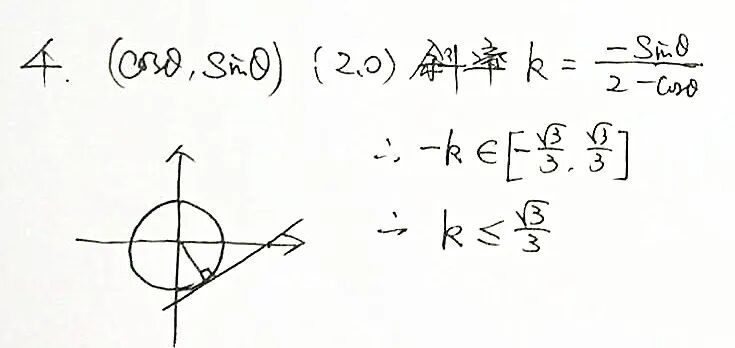 4. (cosθ, sinθ) (2,0) 斜率 k = \frac{-sinθ}{2-cosθ}
∴ -k ∈ [-\frac{√3}{3}, \frac{√3}{3}]
∴ k ≤ \frac{√3}{3}